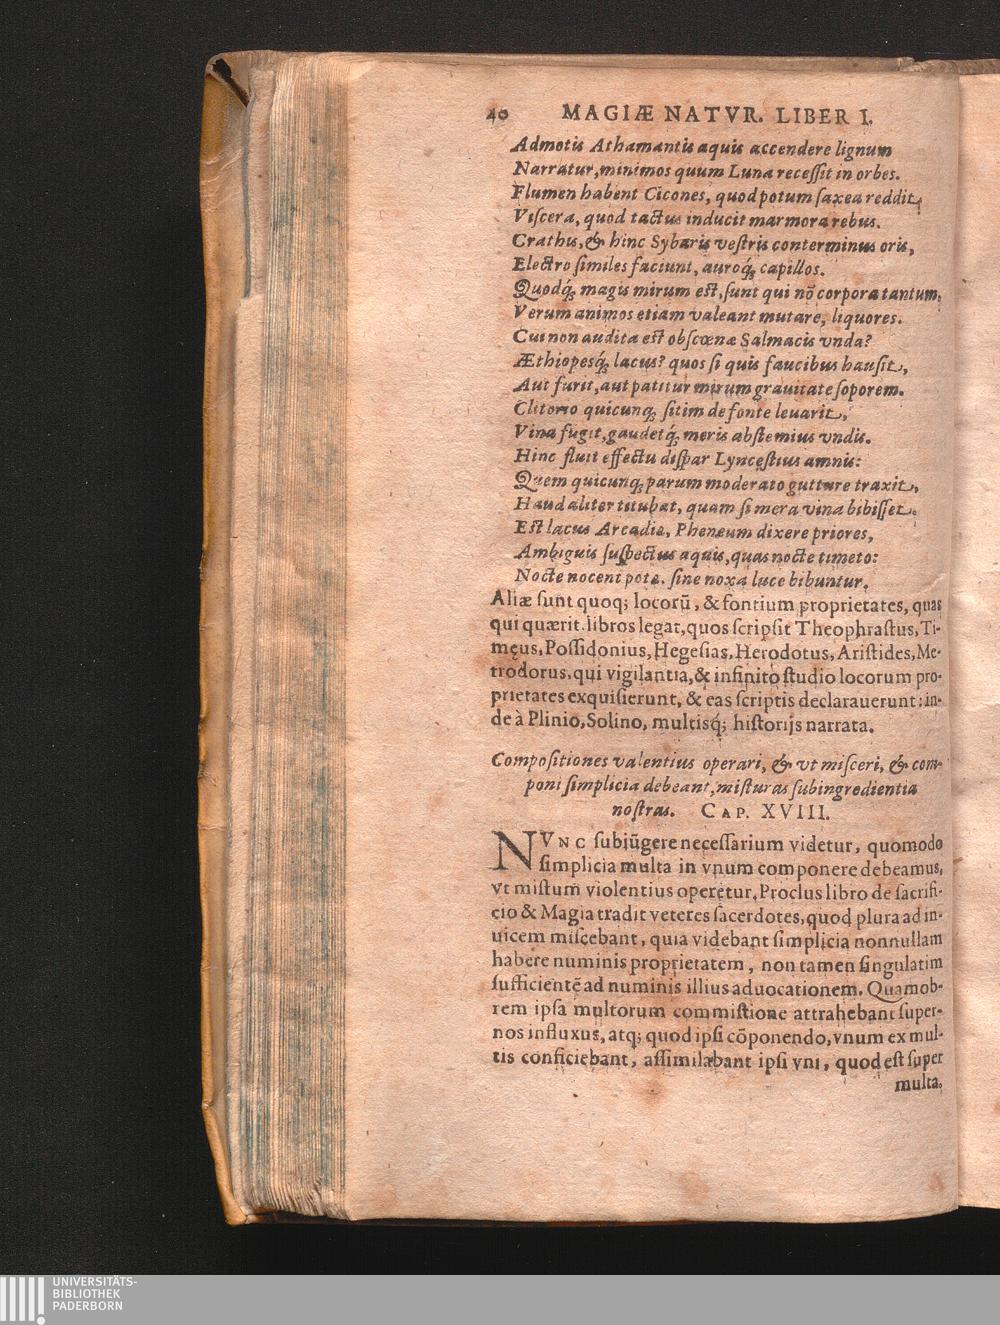 40 MAGIÆ NATVR. LIBER I.
Admotis Athamantis aquis accendere lignum
Narratur, minimos quum Luna recessit in orbes.
Flumen habent Cicones, quod potum saxea reddit,
Viscera, quod tactus inducit marmora rebus.
Crathis, & hinc Sybaris vestris conterminus oris,
Electro similes faciunt, auroq́; capillos.
Quodq́; magis mirum est, sunt qui nõ corpora tantum,
Verum animos etiam valeant mutare, liquores.
Cui non audita est obscœnæ Salmacis vnda?
Æthiopesq́; lacus? quos si quis faucibus hausit,
Aut furit, aut patitur mirum grauitate soporem.
Clitorio quicunq; sitim de fonte leuarit,
Vina fugit, gaudetq́; meris abstemius vndis.
Hinc fluit effectu dispar Lyncęstius amnis:
Quem quicunq; parum moderato gutture traxit,
Haud aliter titubat, quam si mera vina bibisset.
Est lacus Arcadiæ, Pheneum dixere priores,
Ambiguis suspectus aquis, quas nocte timeto:
Nocte nocent potæ. sine noxa luce bibuntur.
Aliæ sunt quoq; locorũ, & fontium proprietates, quas
qui quærit. libros legat, quos scripsit Theophrastus, Ti-
męus, Possidonius, Hegesias, Herodotus, Aristides, Me-
trodorus, qui vigilantia, & infinito studio locorum pro-
prietates exquisierunt, & eas scriptis declarauerunt: in-
de à Plinio, Solino, multisq́; historijs narrata.
Compositiones valentius operari, & vt misceri, & com-
poni simplicia debeant, misturas subingredientia
nostras. CAP. XVIII.
NVNC subiũgere necessarium videtur, quomodo
simplicia multa in vnum componere debeamus,
vt mistum violentius operetur, Proclus libro de sacrifi-
cio & Magia tradit veteres sacerdotes, quod plura ad in-
uicem miscebant, quia videbant simplicia nonnullam
habere numinis proprietatem, non tamen singulatim
sufficientẽ ad numinis illius aduocationem. Quamob-
rem ipsa multorum commistione attrahebant super-
nos influxus, atq; quod ipsi cõponendo, vnum ex mul-
tis conficiebant, assimilabant ipsi vni, quod est super
multa.
UNIVERSITÄTS-
BIBLIOTHEK
PADERBORN